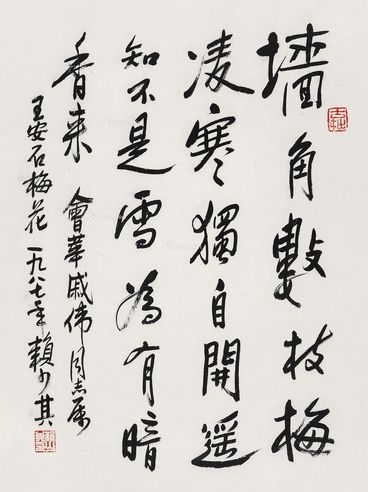 墙角數枝梅
凌寒獨自開遥
知不是雪為有暗
香来 會華戚伟同志属
王安石梅花 一九八七年賴少其